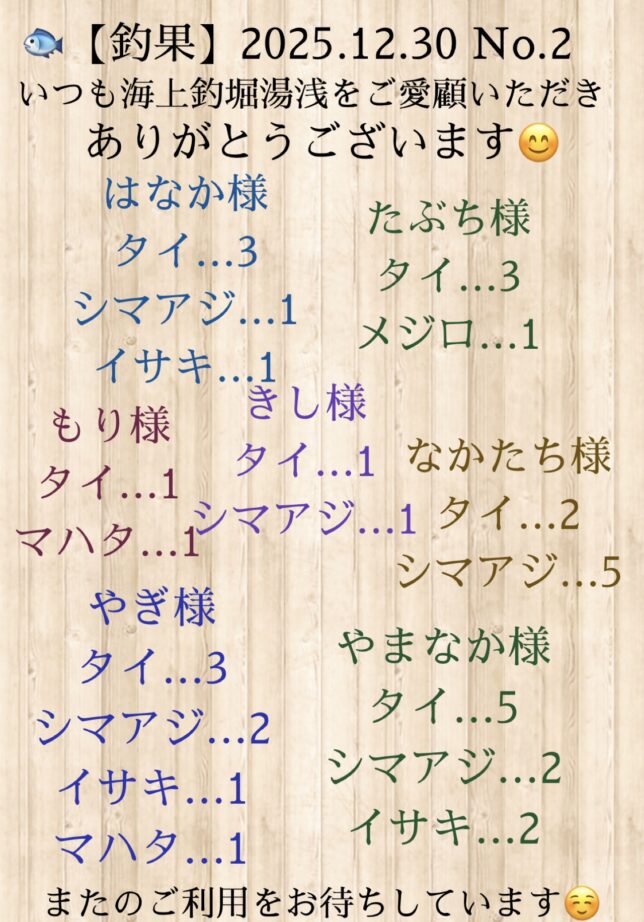 🐟【釣果】2025.12.30 No.2
いつも海上釣堀湯浅をご愛顧いただき
ありがとうございます😊
はなか様
タイ…3
シマアジ…1
イサキ…1
たぶち様
タイ…3
メジロ…1
もり様
タイ…1
マハタ…1
きし様
タイ…1
シマアジ…1
なかたち様
タイ…2
シマアジ…5
やぎ様
タイ…3
シマアジ…2
イサキ…1
マハタ…1
やまなか様
タイ…5
シマアジ…2
イサキ…2
またのご利用をお待ちしています☺️